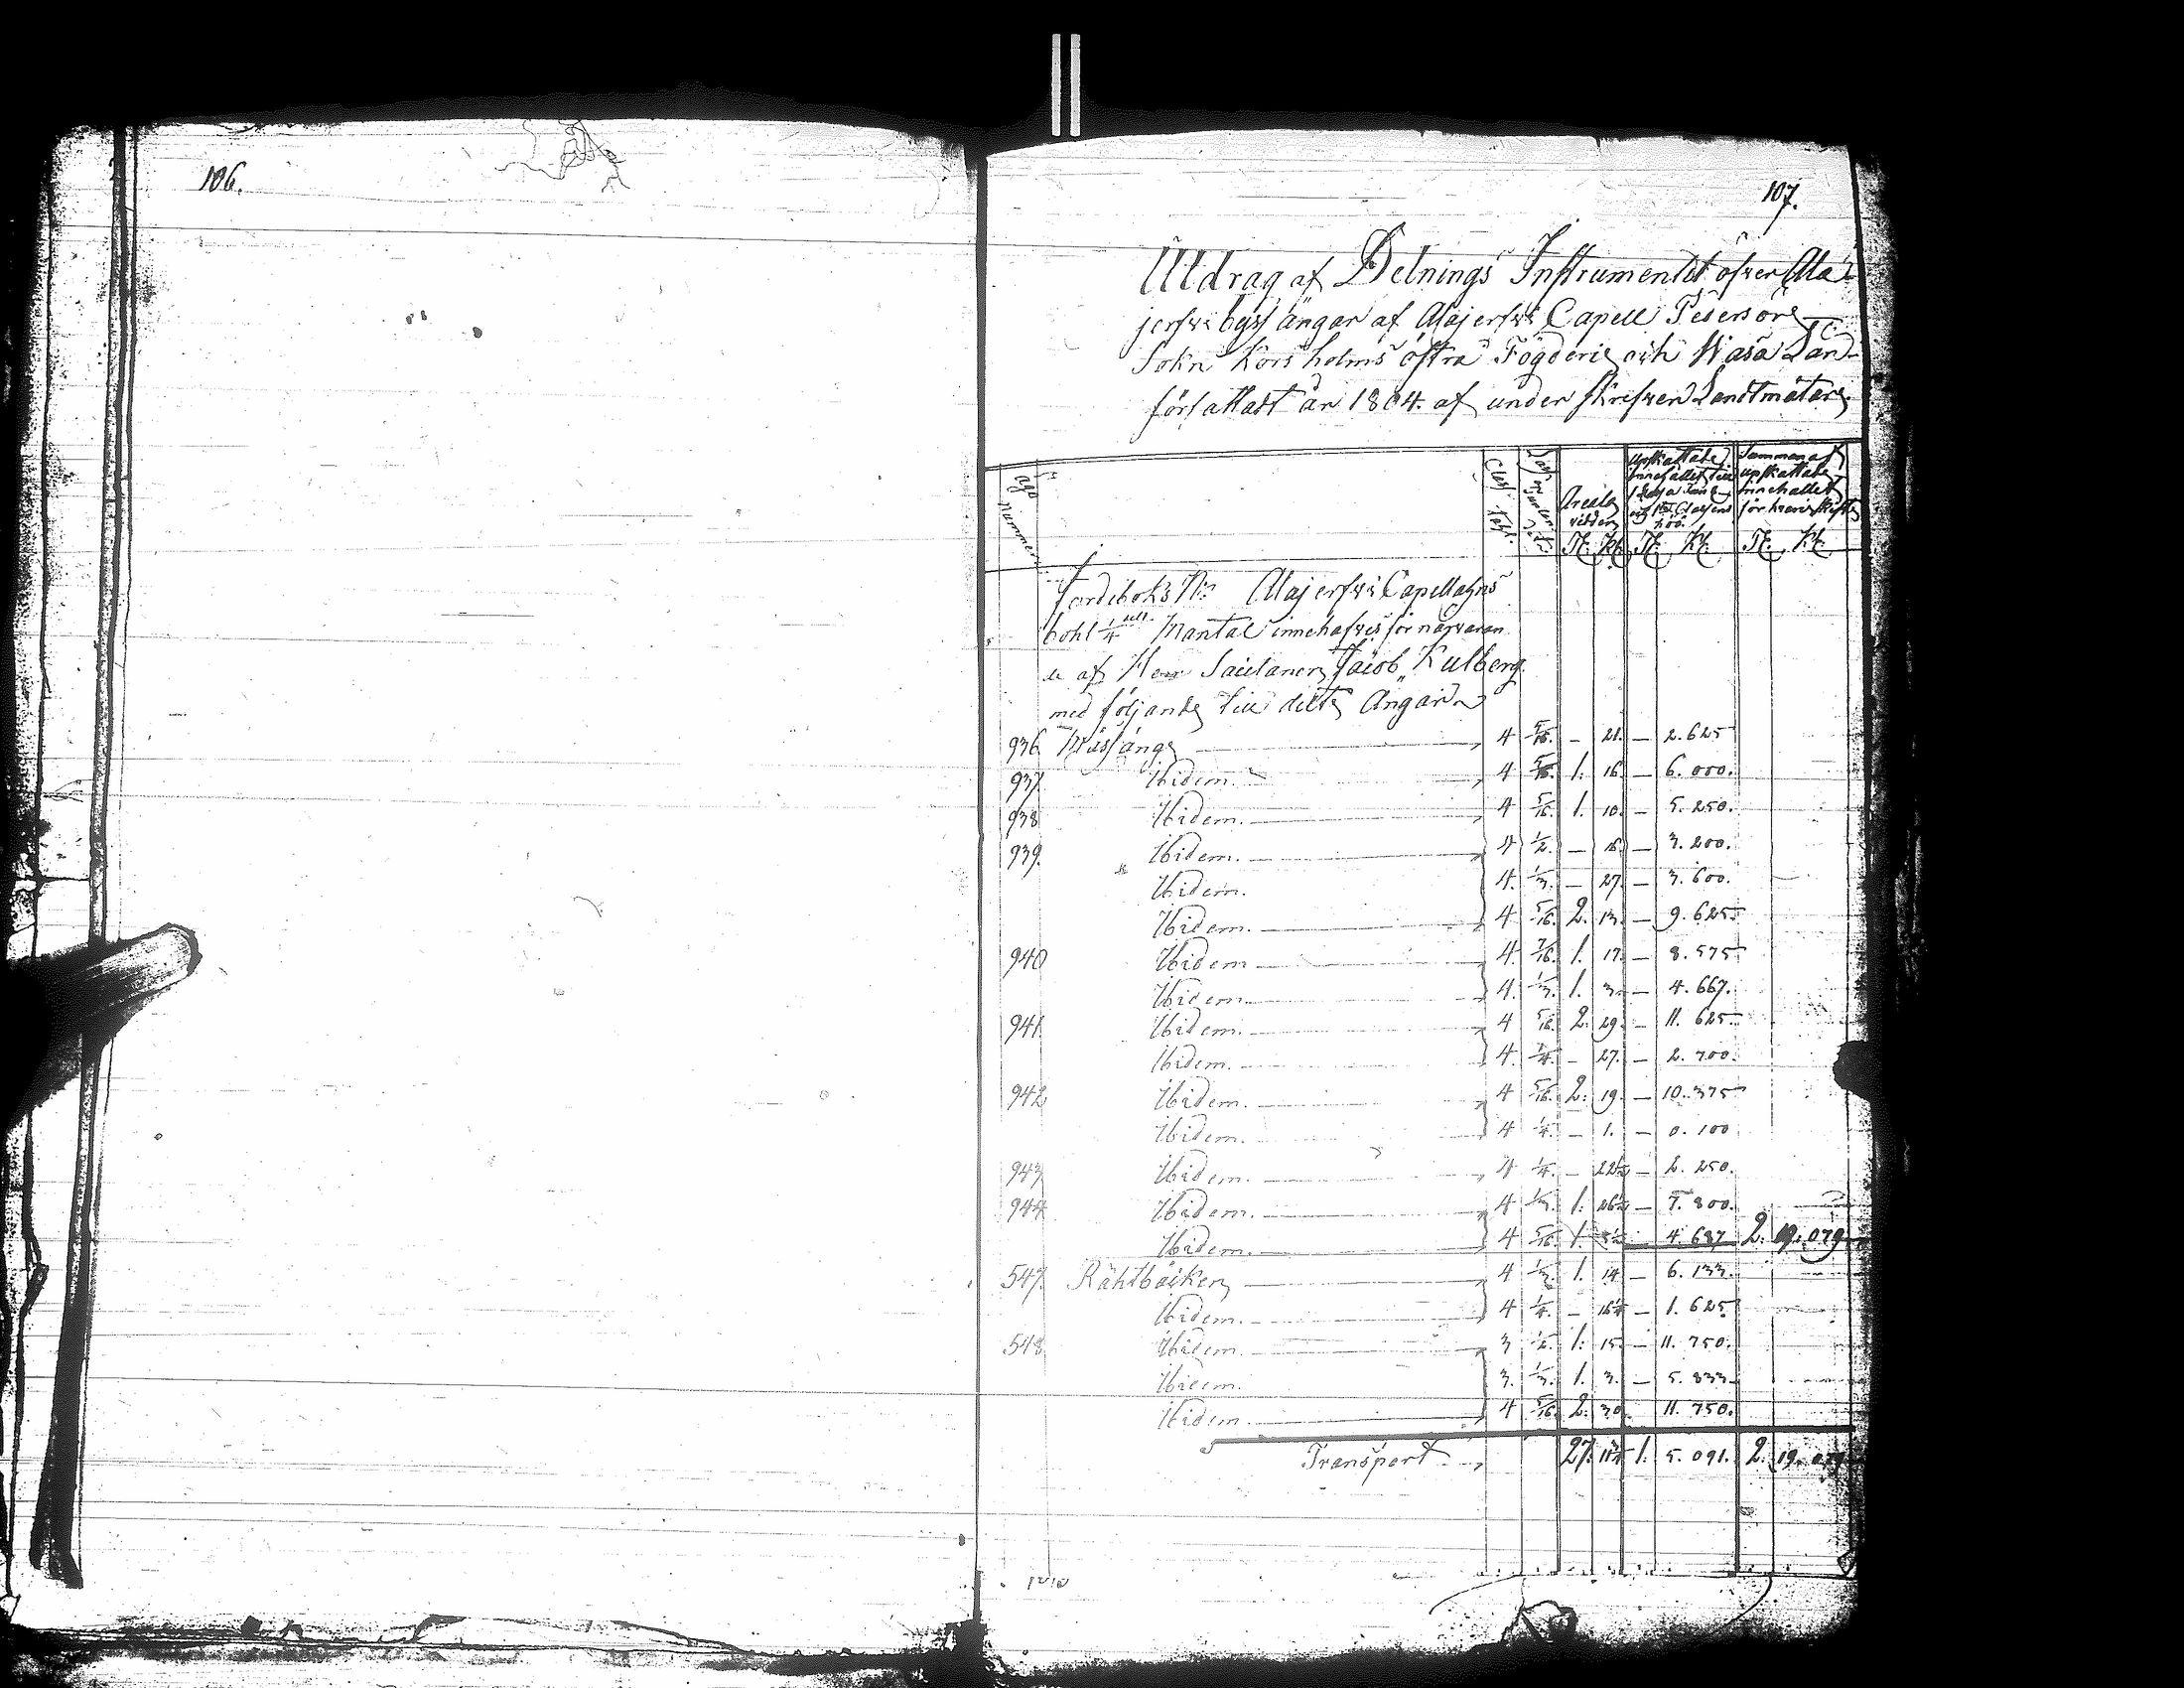 106.
107.
Utdrag af Delnings Instrumentet öfver Ala-
jerfwi byss ängar af Alajerfwi Capell Pedersöre
Sokn Korsholms östra Fögderie och Wasa Län
författadt år 1804. af under skrefven Landtmätare
ägo nummer
Areale vidden
Upskattade innehållet till
Summan af upskattade innehållet för hvarje skifte
T: K: T: K: T: K:
Jordeboks No: Alajerfwi Capellans
bohl 1/4 dels Mantal innehafves för närvaran
de af Herr Jacob Kulberg
med följande till delte Ängar
936 4 5/16. - 21. - 2.625
937. Ibidem. 4 5/16 1. 16. - 6.000.
938 Ibidem. 4 5/16. 1. 10. - 5.250.
939. Ibidem. 4 1/2. - 16. - 3.200.
Ibidem. 4. 1/3. - 27. - 3.600.
Ibidem. 4 5/16. 2. 13. - 9.625
940 Ibidem 4. 7/16. 1. 17. - 8.575
Ibidem. 4. 1/3. 1. 3. - 4.667.
941. Ibidem. 4 5/16. 2. 29. - 11.625
Ibidem. 4. 1/4. - 27. - 2.700.
942 Ibidem. 4 5/16. 2. 19. - 10.375
Ibidem. 4 1/4. - 1. - 0.100
943 Ibidem. 4 1/4. - 22 1/2 - 2.250.
944 Ibidem. 4 1/3. 1. 26 1/2 - 7.800.
Ibidem. 4 5/16. 1. 5 1/2 4.687 2. 19.079
547. 4 1/3. 1. 14 - 6.133.
Ibidem. 4 1/4. - 16 1/4 - 1.625
548. Ibidem. 3 1/2. 1. 15. - 11.750.
Ibidem. 3. 1/3. 1. 3. - 5.833
Ibidem. 4 5/16. 2. 30. 11.750.
Transport 27. 11 3/4 1. 5.091. 2. 19.079